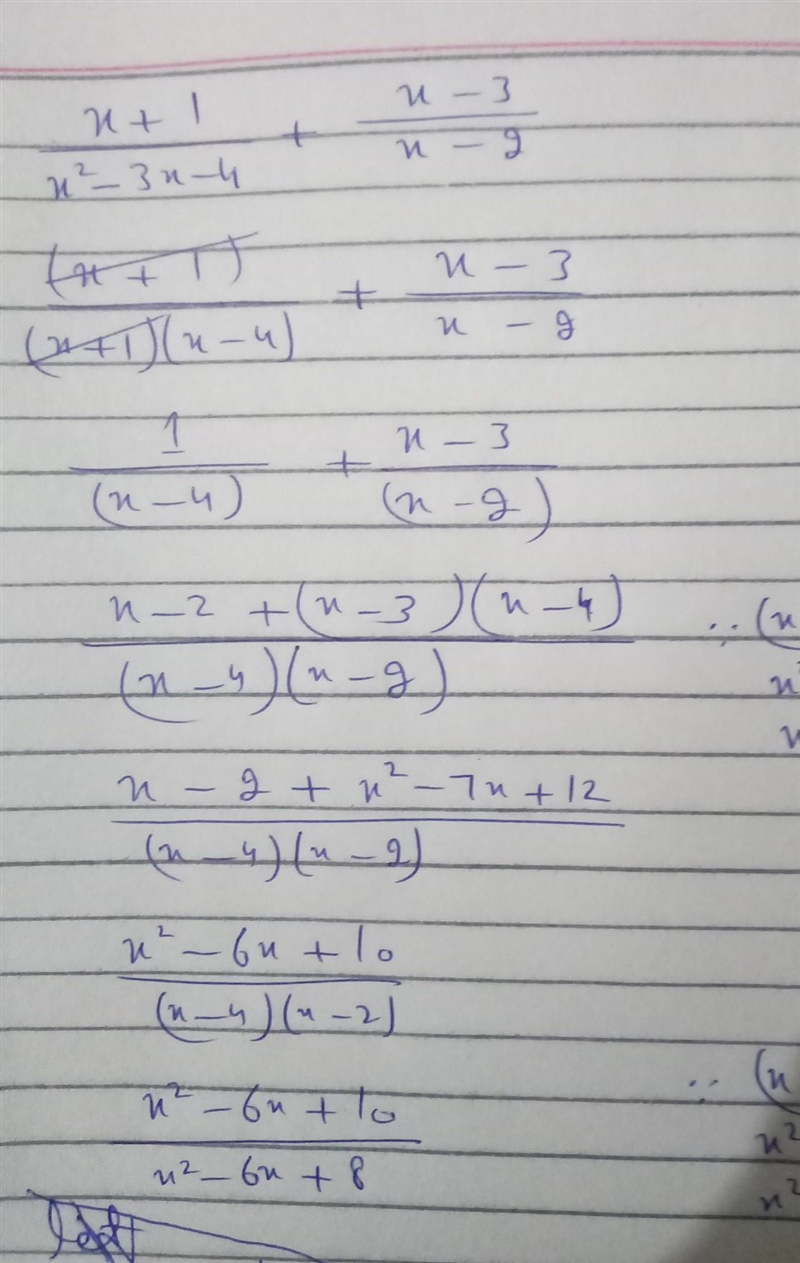 x + 1 / x² - 3x - 4 + x - 3 / x - 2
(x + 1) / (x+1)(x - 4) + x - 3 / x - 2
1 / (x - 4) + x - 3 / (x - 2)
x - 2 + (x - 3)(x - 4) / (x - 4)(x - 2) ∵ (x
x²
x
x - 2 + x² - 7x + 12 / (x - 4)(x - 2)
x² - 6x + 10 / (x - 4)(x - 2)
x² - 6x + 10 / x² - 6x + 8 ∵ (x
x²
x²